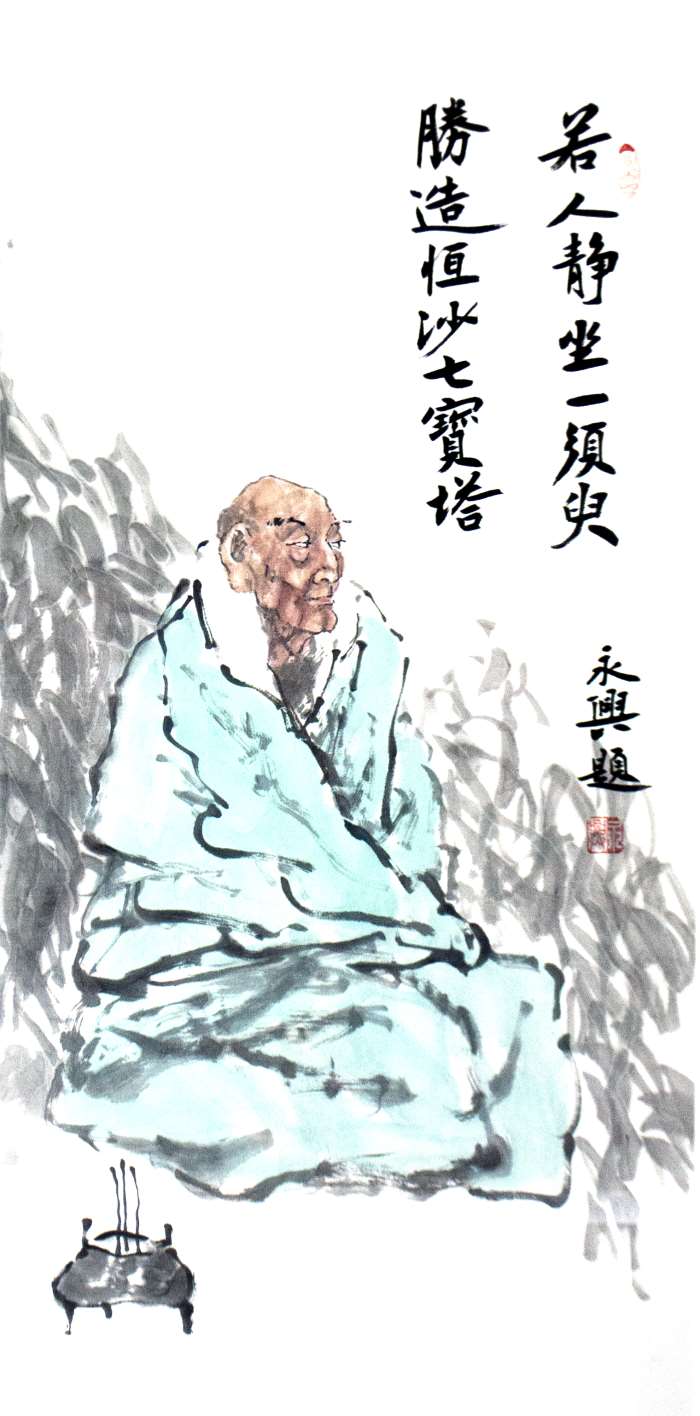 若人静坐一須臾
勝造恒沙七寳塔
永興題